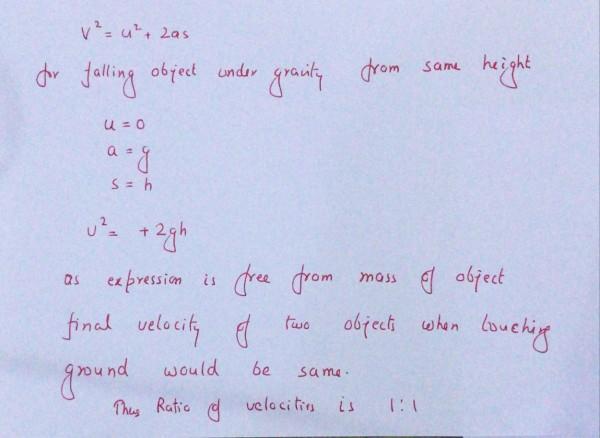 v² = u² + 2as
for falling object under gravity from same height
u = 0
a = g
s = h
v² = + 2gh
as expression is free from mass of object
final velocity of two objects when touching
ground would be same.
Thus Ratio of velocities is 1:1